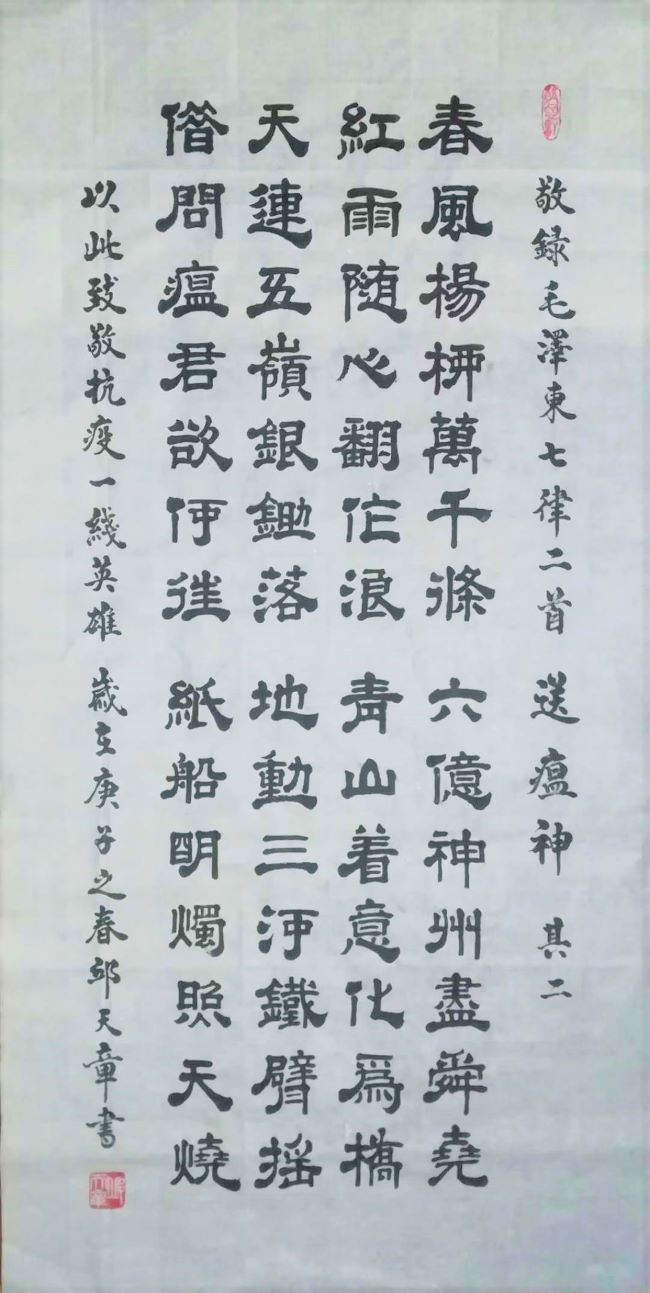 敬録毛澤東七律二首 送瘟神 其二
春風楊柳萬千條 六億神州盡舜堯
紅雨随心翻作浪 青山着意化爲橋
天連五嶺銀鋤落 地動三河鐵臂摇
借問瘟君欲何往 紙船明燭照天燒
以此致敬抗疫一綫英雄 歲在庚子之春邱天章書